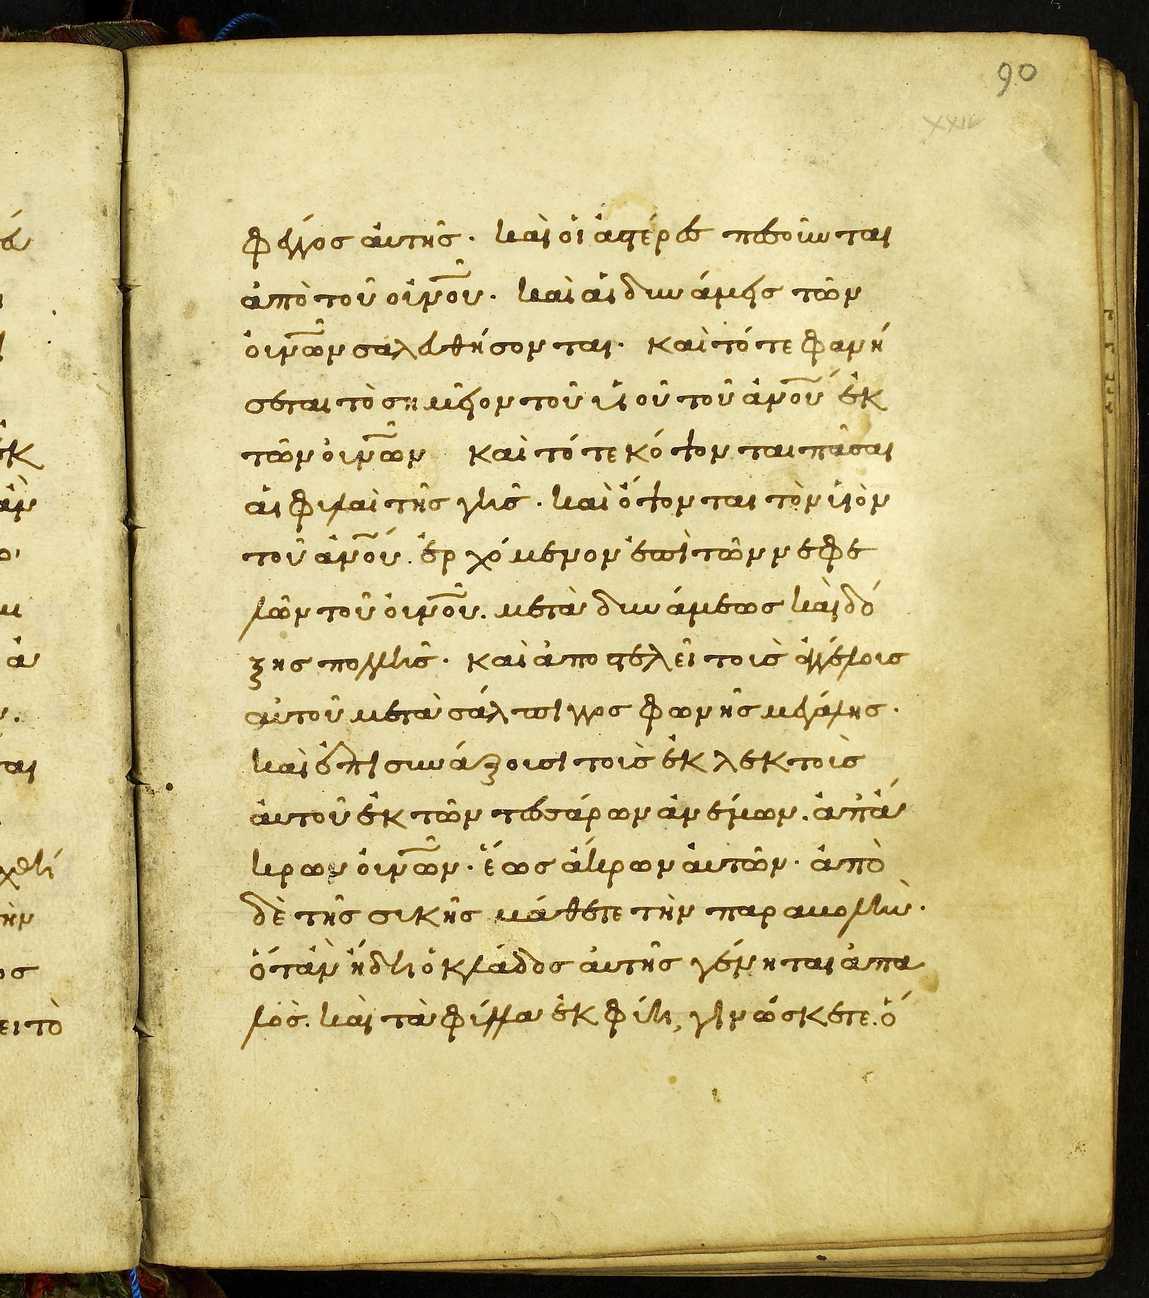 90
XXIV
φέγγος ἀυτῆς· καὶ οἱ ἀστέρες πεσοῦνται
ἀπὸ τοῦ οὐνοῦ· καὶ ἁι δυνάμεις τῶν
ὀυνῶν σαλευθήσονται· καὶ τότε φανή
σεται τὸ σημεῖον τοῦ υἱοῦ τοῦ ἀνου ἐκ
τῶν ὀυνῶν καὶ τότε κόψονται πᾶσαι
ἁι φιλαὶ τῆς γῆς· καὶ ὄψονται τὸν υἱὸν
τοῦ ἀνου. ἐρχόμενον ἐπὶ τῶν νεφε
λῶν τοῦ ὀυνοῦ. μετὰ δυνάμεως καὶ δό
ξης πολλῆς· καὶ ἀποστελεῖ τοὶς ἀγγέλοις
αὐτοῦ μετὰ σάλπιγγος φωνῆς μεγάλης·
καὶ ἐπισυνάξουσι τοὶς ἐκλεκτοὶς
ἀυτοῦ ἐκ τῶν τεσάρων ἀνέμων. ἀπ' ἄ
κρων ὀυνῶν· ἕως ἄκρων ἀυτῶν· ἀπὸ
δὲ τῆς σικῆς μάθετε τὴν παραβολὴν·
ὅταν ἤδη ὁ κλάδος ἀυτῆς γένηται ἁπα
λὸς. καὶ τὰ φίλλα ἐκφύει, γινώσκετε. ὅ